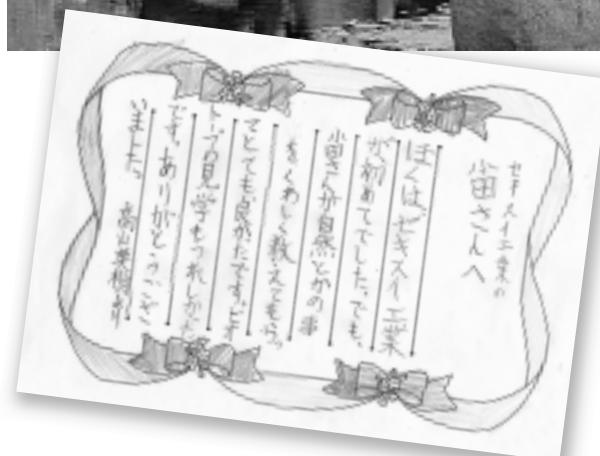 セキスイ工業の
小田さんへ
ぼくは、セキスイ工業
が初めてでした。でも、
小田さんが自然とかの事
をくわしく教えてもらっ
てとても良かったです。ビオ
トープの見学もうれしかった
です。ありがとうござ
いました。